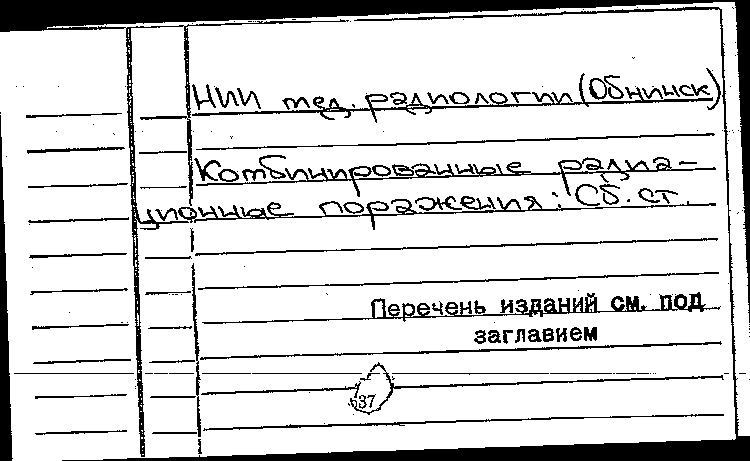 НИИ мед. радиологии (Обнинск)
Комбинированные радиа-
ционные поражения: Сб. ст.
Перечень изданий см. под
заглавием
637